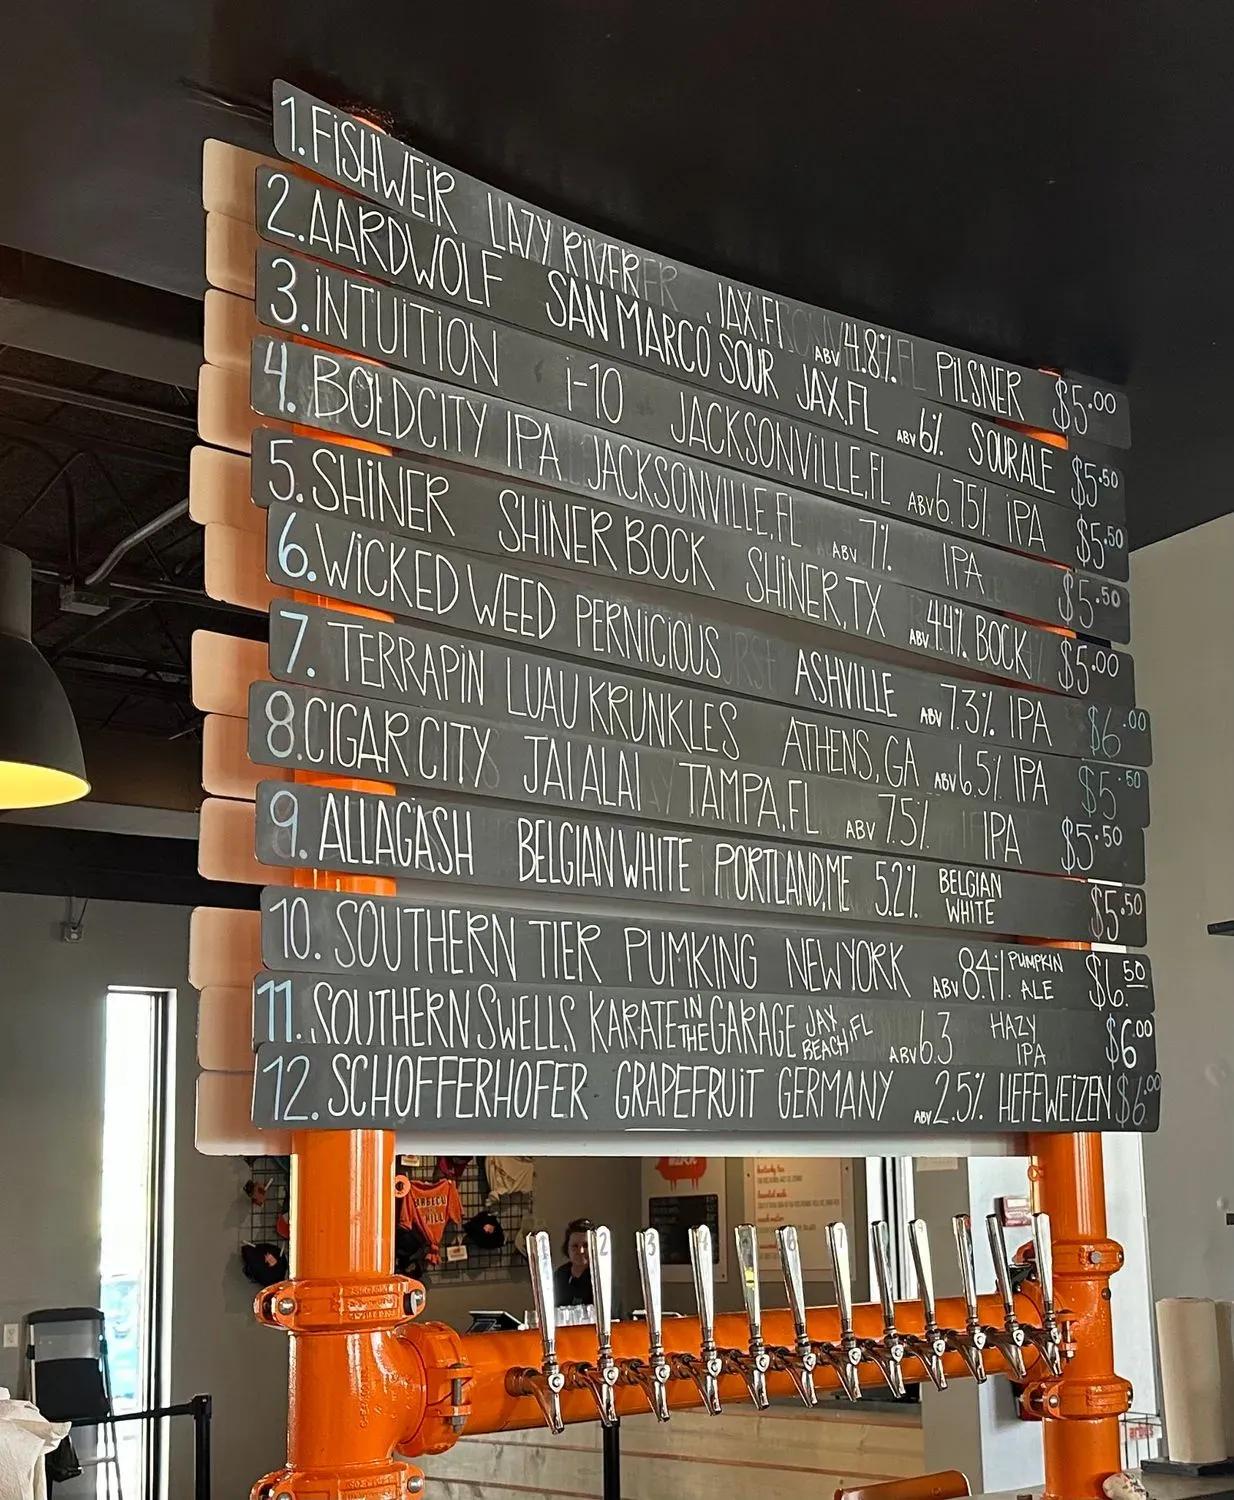 1. FISHWEIR LAZY RIVER JAX, FL ABV 4.8% PILSNER $5.00
2. AARDWOLF SAN MARCO SOUR JAX, FL ABV 6% SOUR ALE $5.50
3. INTUITION i-10 JACKSONVILLE, FL ABV 6.75% IPA $5.50
4. BOLDCITY IPA JACKSONVILLE, FL ABV 7% IPA $5.50
5. SHINER SHINER BOCK SHINER, TX ABV 4.4% BOCK $5.00
6. WICKED WEED PERNICIOUS ASHVILLE ABV 7.3% IPA $6.00
7. TERRAPIN LUAU KRUNKLES ATHENS, GA ABV 6.5% IPA $5.50
8. CIGAR CITY JAI ALAI TAMPA, FL ABV 7.5% IPA $5.50
9. ALLAGASH BELGIAN WHITE PORTLAND, ME 5.2% BELGIAN WHITE $5.50
10. SOUTHERN TIER PUMKING NEW YORK ABV 8.4% PUMPKIN ALE $6.50
11. SOUTHERN SWELLS KARATE IN THE GARAGE JAX BEACH, FL ABV 6.3 HAZY IPA $6.00
12. SCHOFFERHOFER GRAPEFRUIT GERMANY ABV 2.5% HEFEWEIZEN $6.00
1 2 3 4